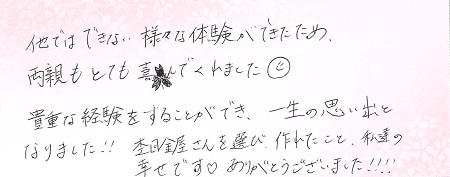 他ではできない様々な体験ができたため、
両親もとても喜んでくれました☺
貴重な経験をすることができ、一生の思い出と
なりました!! 杢目金屋さんを選び、作れたこと、私達の
幸せです♡ ありがとうございました!!!!